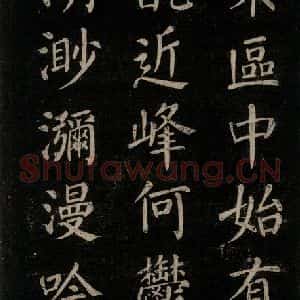 區中始有
近峰何鬱
渺瀰漫吟
Shufawang.CN